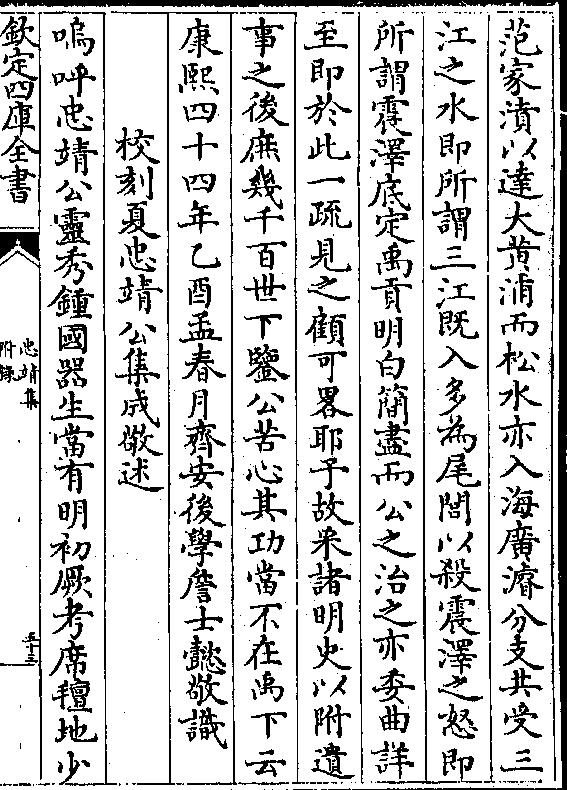 范家濆以達大黄浦而松水亦入海廣濬分支共受三
江之水即所謂三江既入多為尾閭以殺震澤之怒即
所謂震澤底定禹貢明白簡盡而公之治之亦委曲詳
至即於此一疏見之顧可畧耶予故采諸明史以附遺
事之後庶幾千百世下鑒公苦心其功當不在禹下云
康熙四十四年乙酉孟春月齊安後學詹士懿敬識
校刻夏忠靖公集成敬述
嗚呼忠靖公靈秀鍾國器生當有明初厥考席氊地少
欽定四庫全書
忠靖集
附錄
五十三